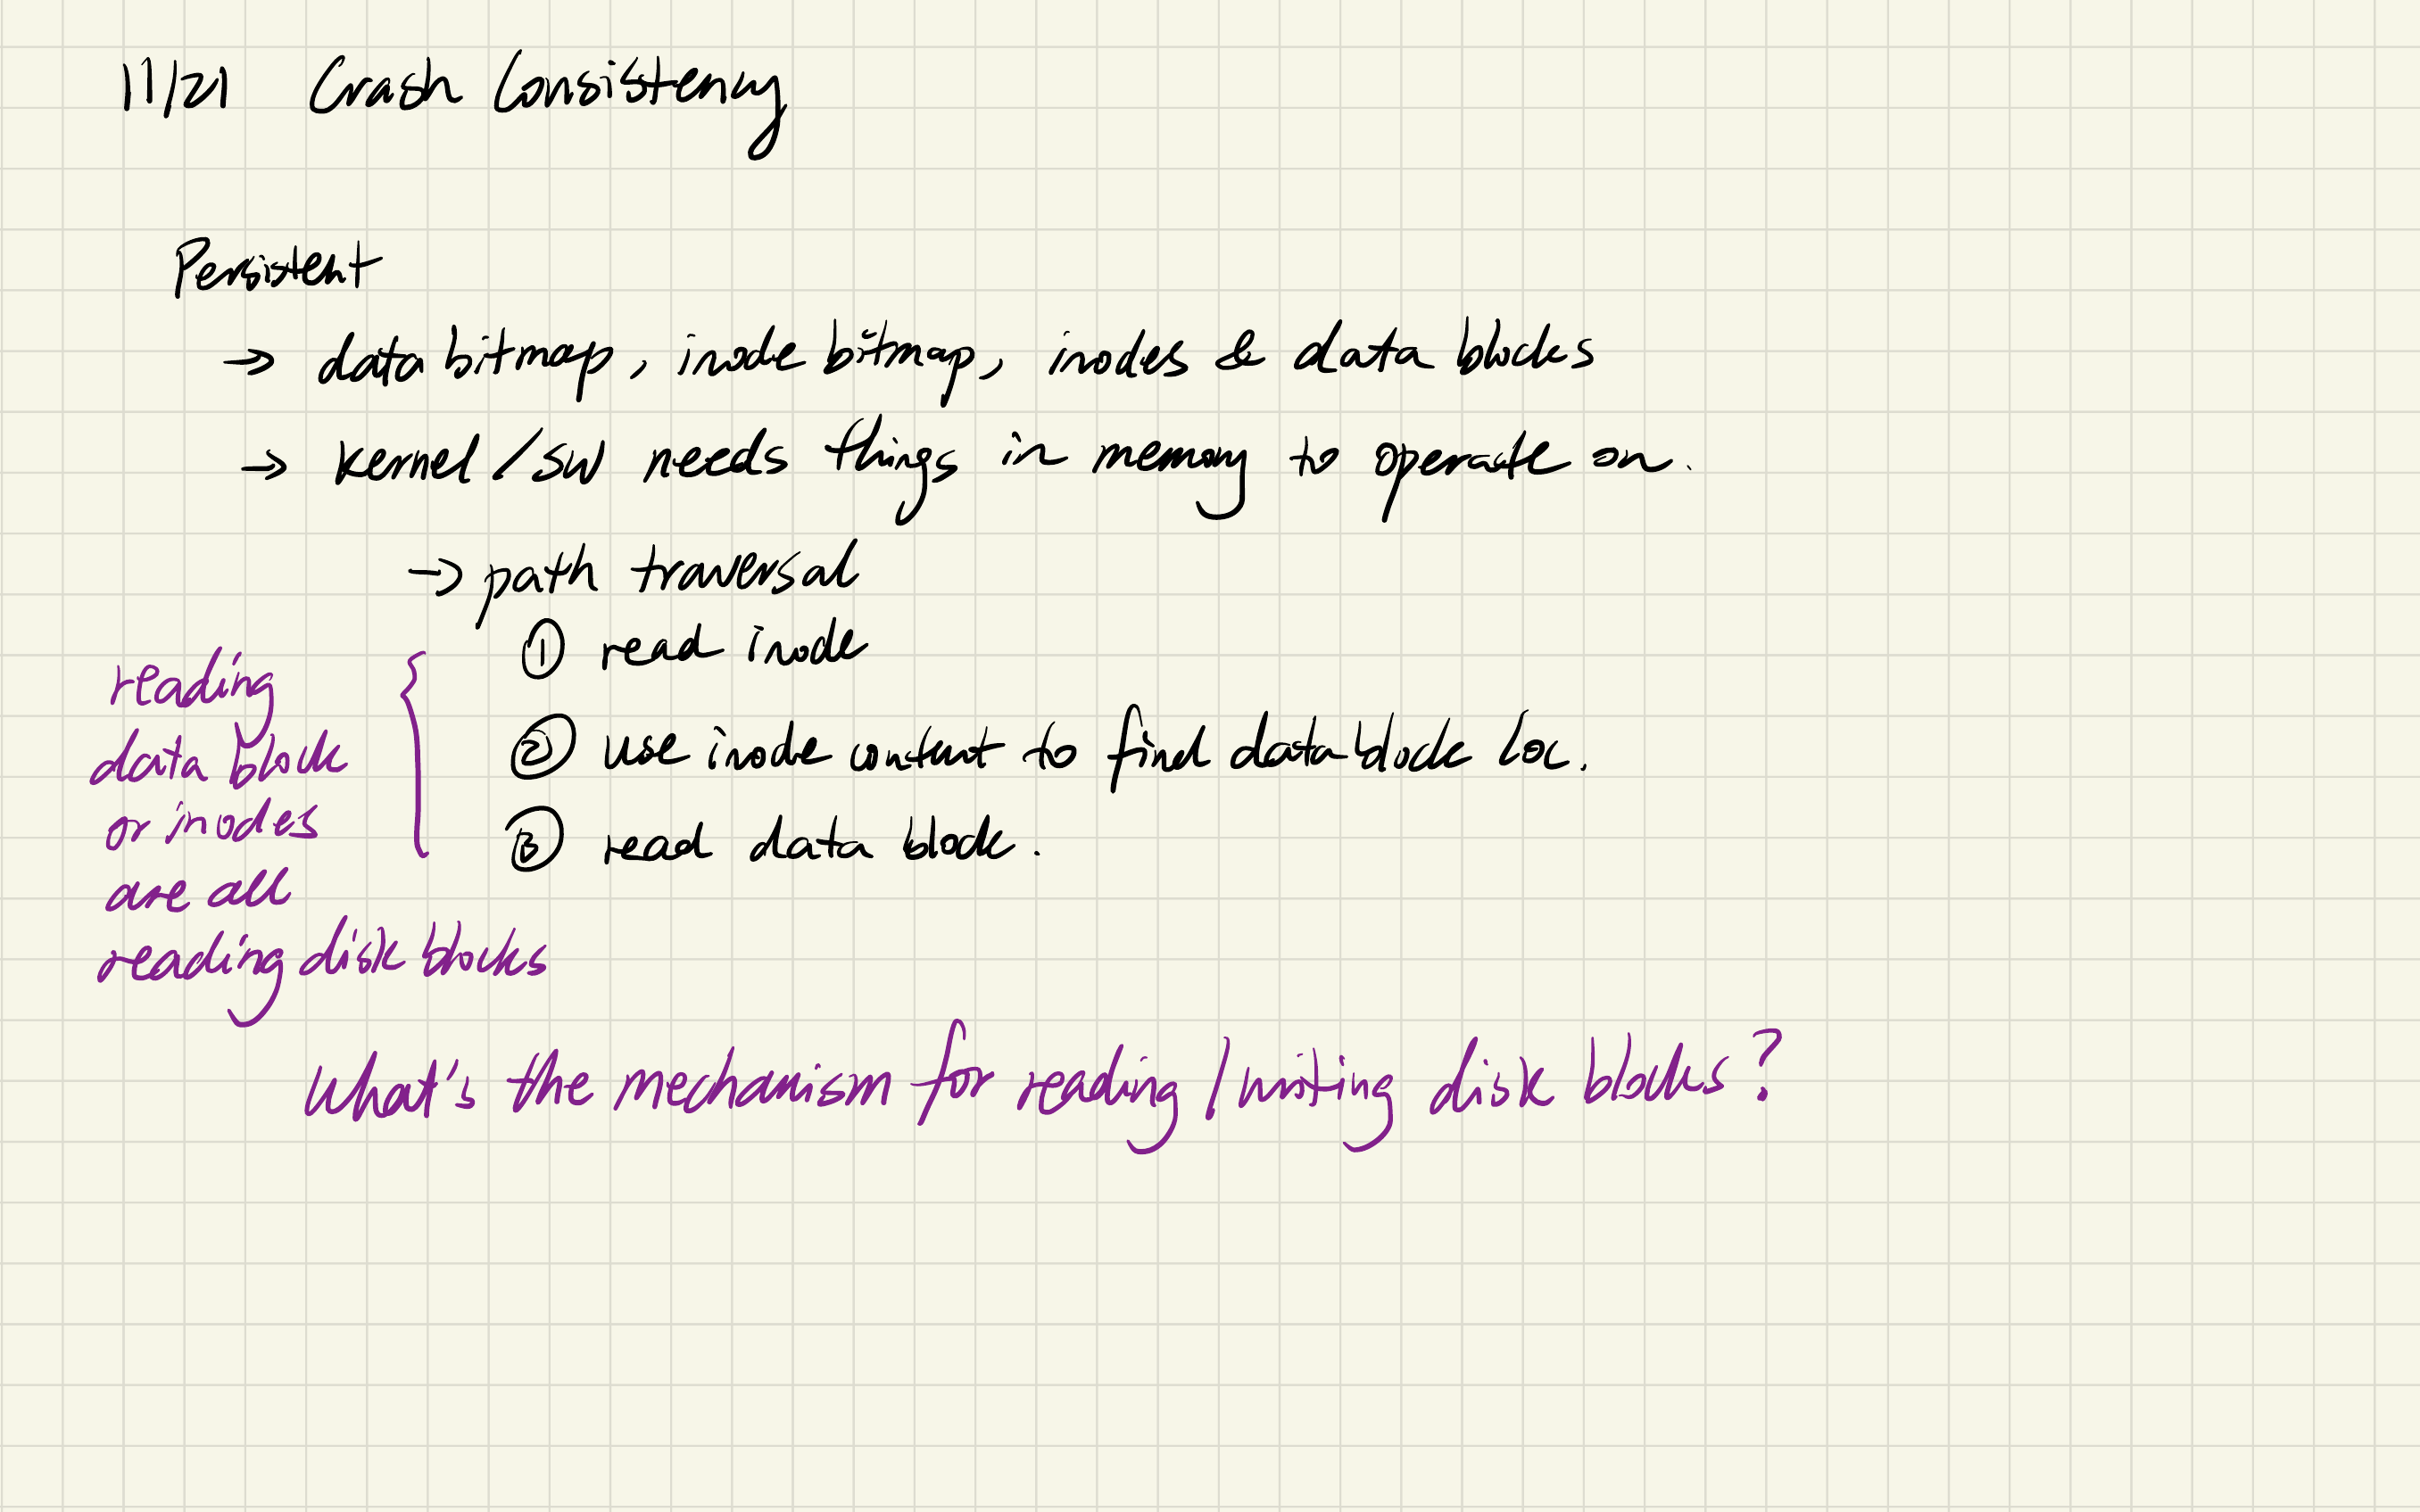 11/21 Crash Consistency
Persistent
→ data bitmap, inode bitmap, inodes & data blocks
→ kernel/sw needs things in memory to operate on.
→ path traversal
① read inode
② use inode content to find data block loc.
③ read data block.
reading
data block
or inodes
are all
reading disk blocks
What's the mechanism for reading/writing disk blocks?